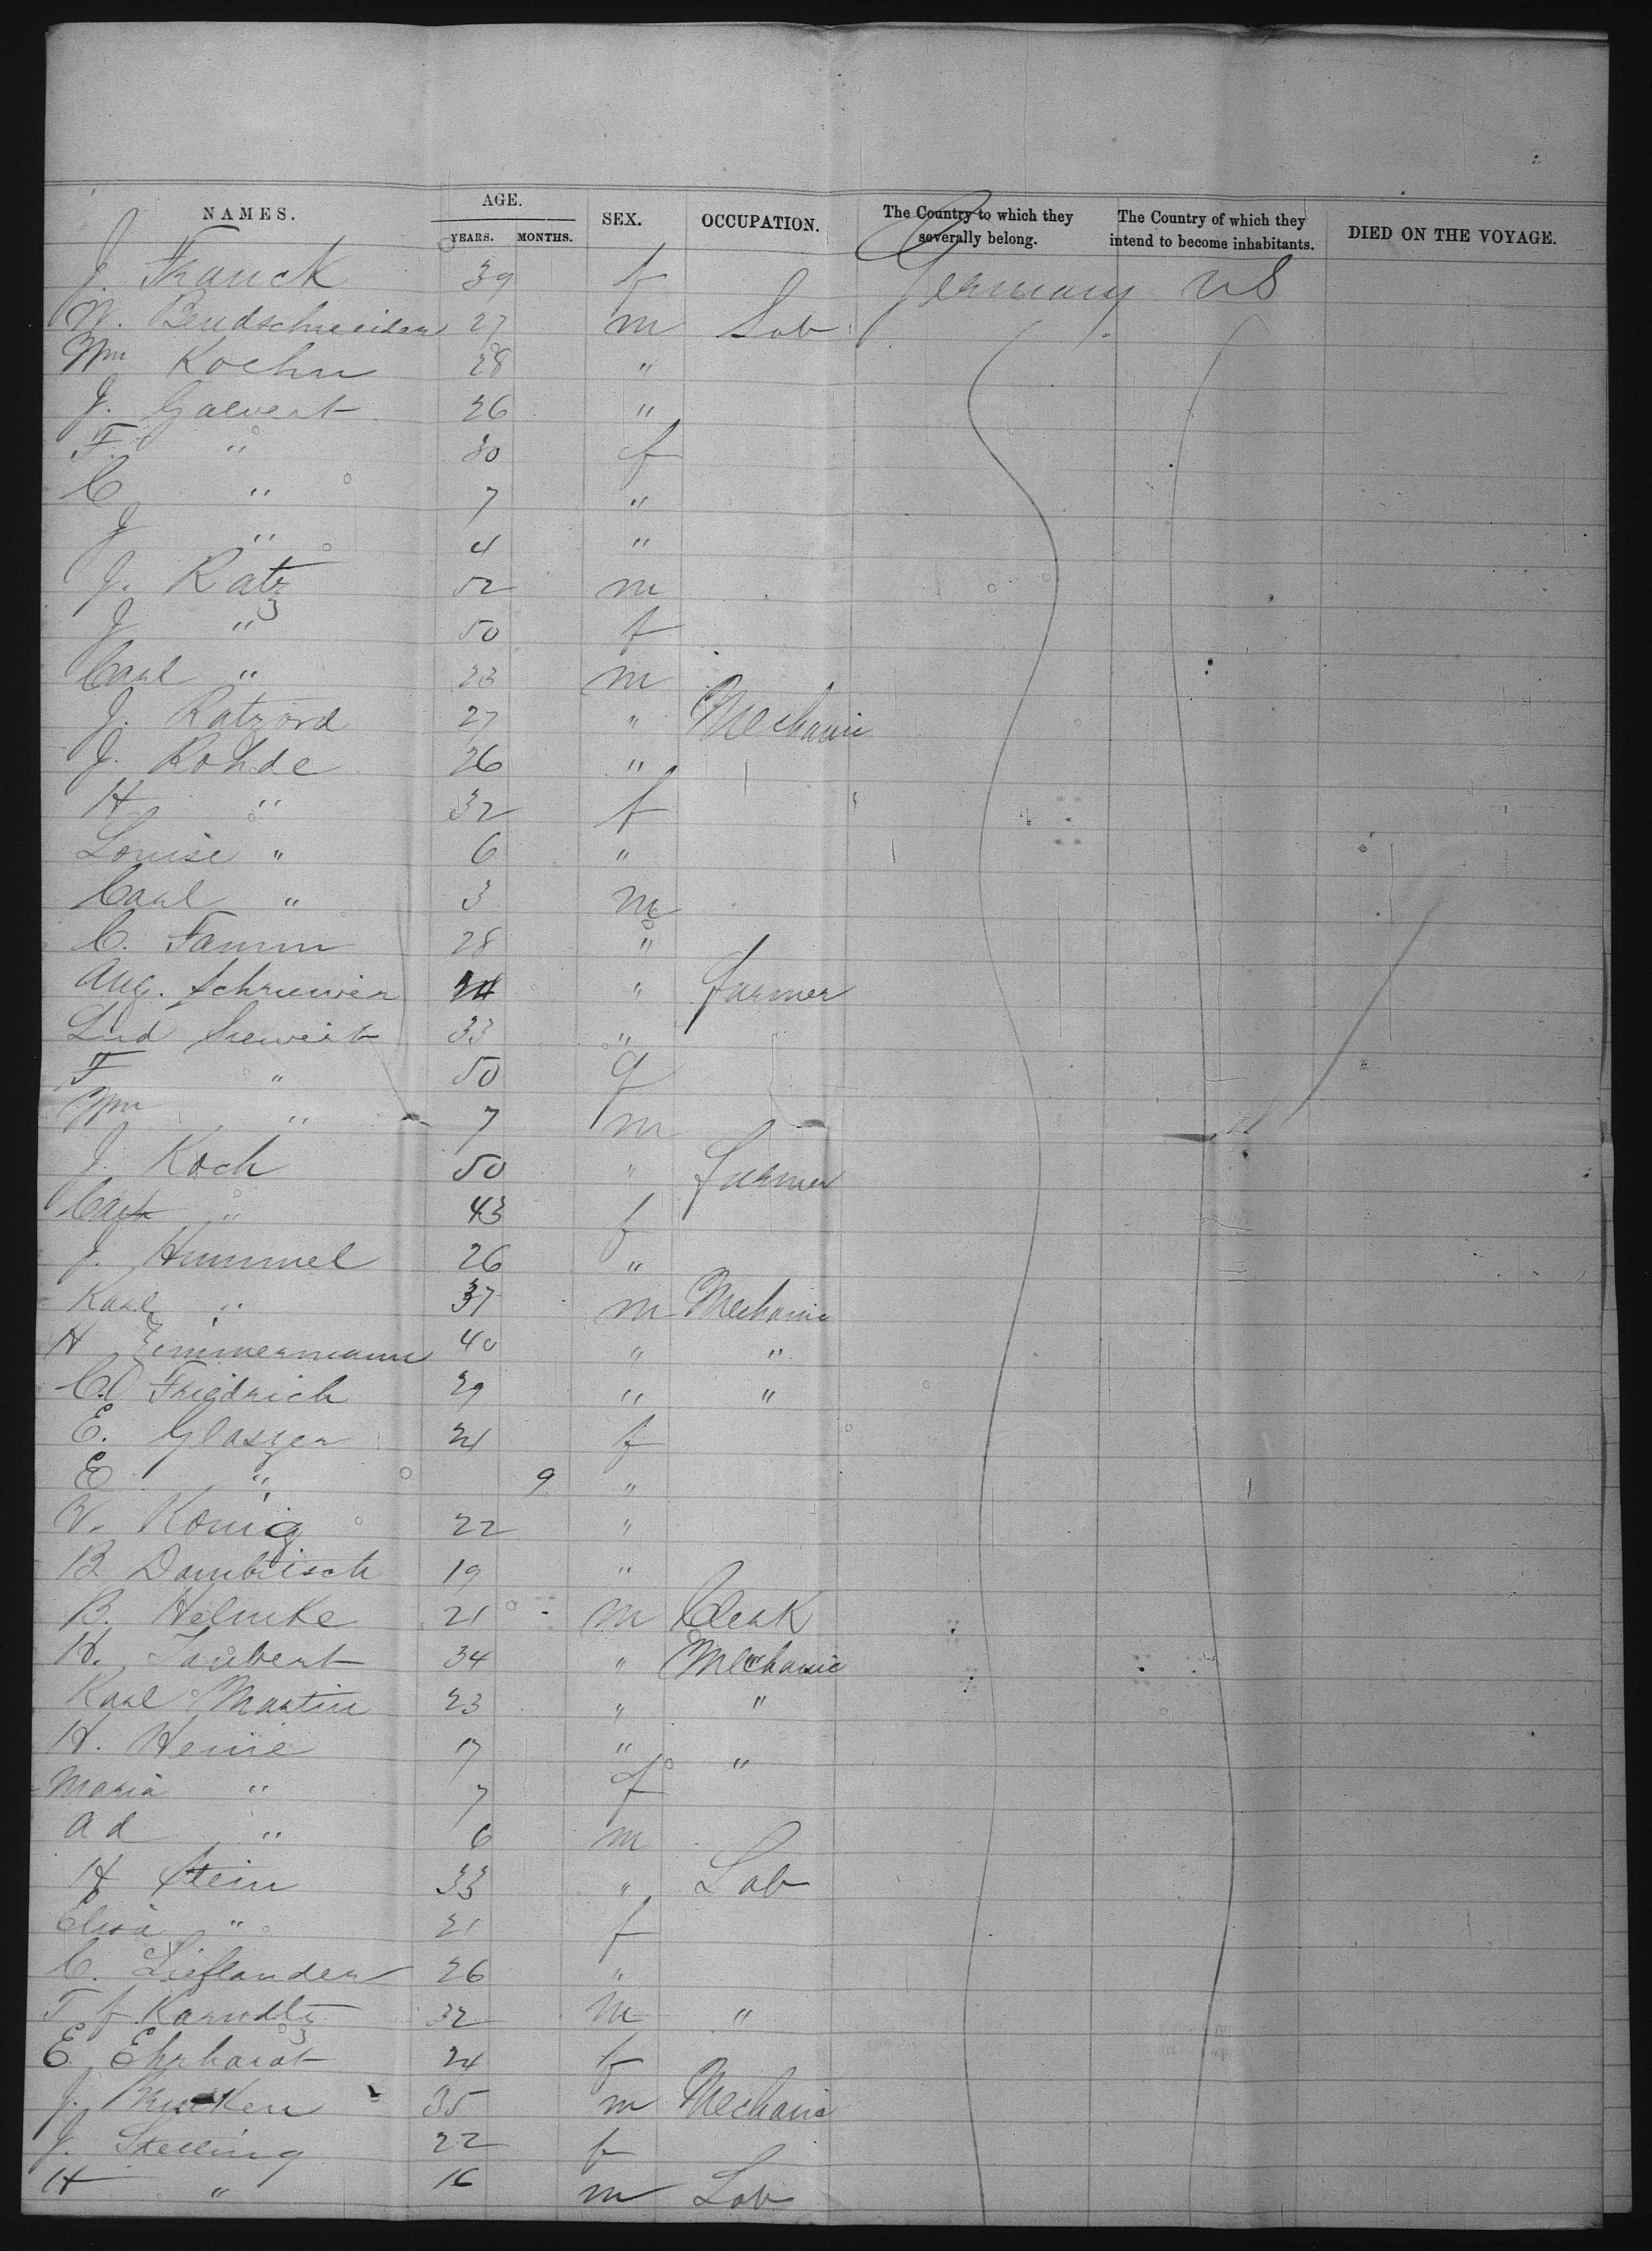 NAMES. AGE. YEARS. MONTHS. SEX. OCCUPATION. The Country to which they severally belong. The Country of which they intend to become inhabitants. DIED ON THE VOYAGE.
J. Franck 39 f Germany US
W. Bendschneider 27 m Lab
Wm Koehn 28 "
J. Galvert 26 "
F. " 30 f
C " 7 "
J " 4 "
J. Ratz 52 m
J " 50 f
Carl " 23 m
J. Ratzord 27 " Mechanic
J. Rohde 26 "
H " 32 f
Louise " 6 "
Carl " 3 m
C. Famm 28 "
Aug. Schruwer "  Farmer
Lud Siewert 33 "
F " 50
Wm " 7 m
J. Koch 50 " Farmer
" 43 f
J. Hummel 26 "
Karl " 37 m Mechanic
H Zimmermann 40 " "
C. Friedrich 29 " "
E. Glaszer 21 f
E " 9 "
W. König 22 "
B Dambisch 19 "
B. Helmke 21 m Clerk
H. Taubert 34 " Mechanic
Karl Martin 23 " "
H. Heine 17 " "
Maria " 7 f
Ad " 6 m
H Stein 33 " Lab
Elisa " 21 f
C. Lieflander 26 "
T f Karndtz 32 m "
E. Ehrhardt 24 f
J. 35 m Mechanic
J. Stelling 22 f
H " 16 m Lab